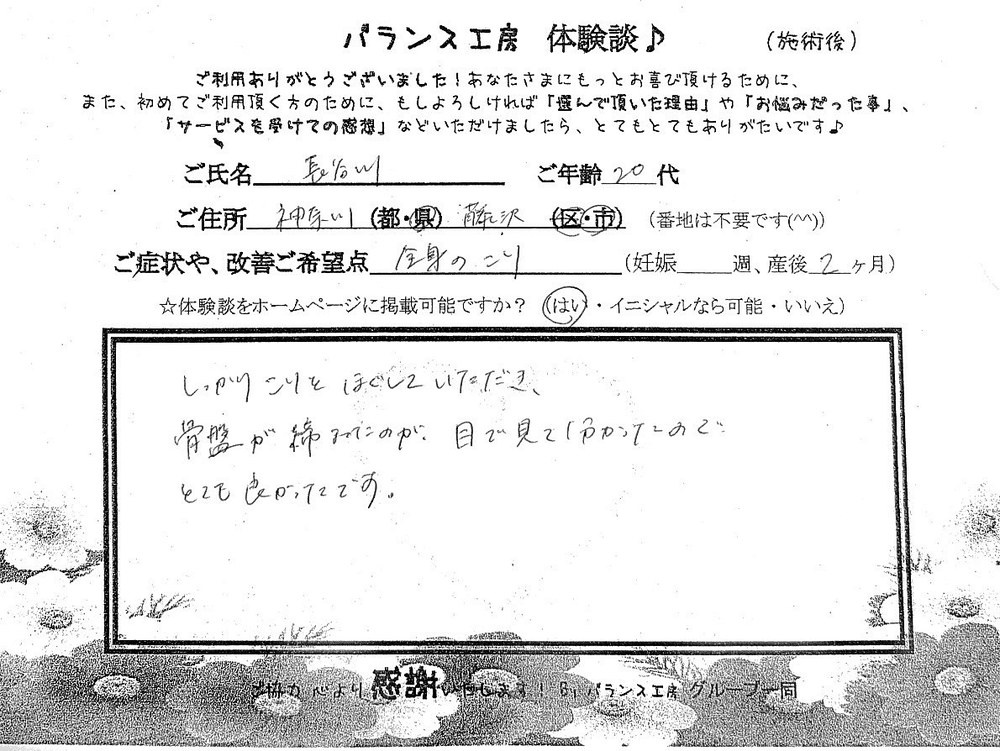 バランス工房 体験談♪ (施術後)
ご利用ありがとうございました!あなたさまにもっとお喜び頂けるために、
また、初めてご利用頂く方のために、もしよろしければ「選んで頂いた理由」や「お悩みだった事」、
「サービスを受けての感想」などいただけましたら、とてもとてもありがたいです♪
ご氏名 長谷川 ご年齢 20 代
ご住所 神奈川 (都・県) 藤沢 (区・市) (番地は不要です(^^))
ご症状や、改善ご希望点 全身のこり (妊娠 週、産後 2 ヶ月)
☆体験談をホームページに掲載可能ですか? (はい・イニシャルなら可能・いいえ)
しっかりこりをほぐしていただき、
骨盤が締まったのが、目で見て分かったので
とても良かったです。
ご協力 心より 感謝 いたします! By バランス工房 グループ一同